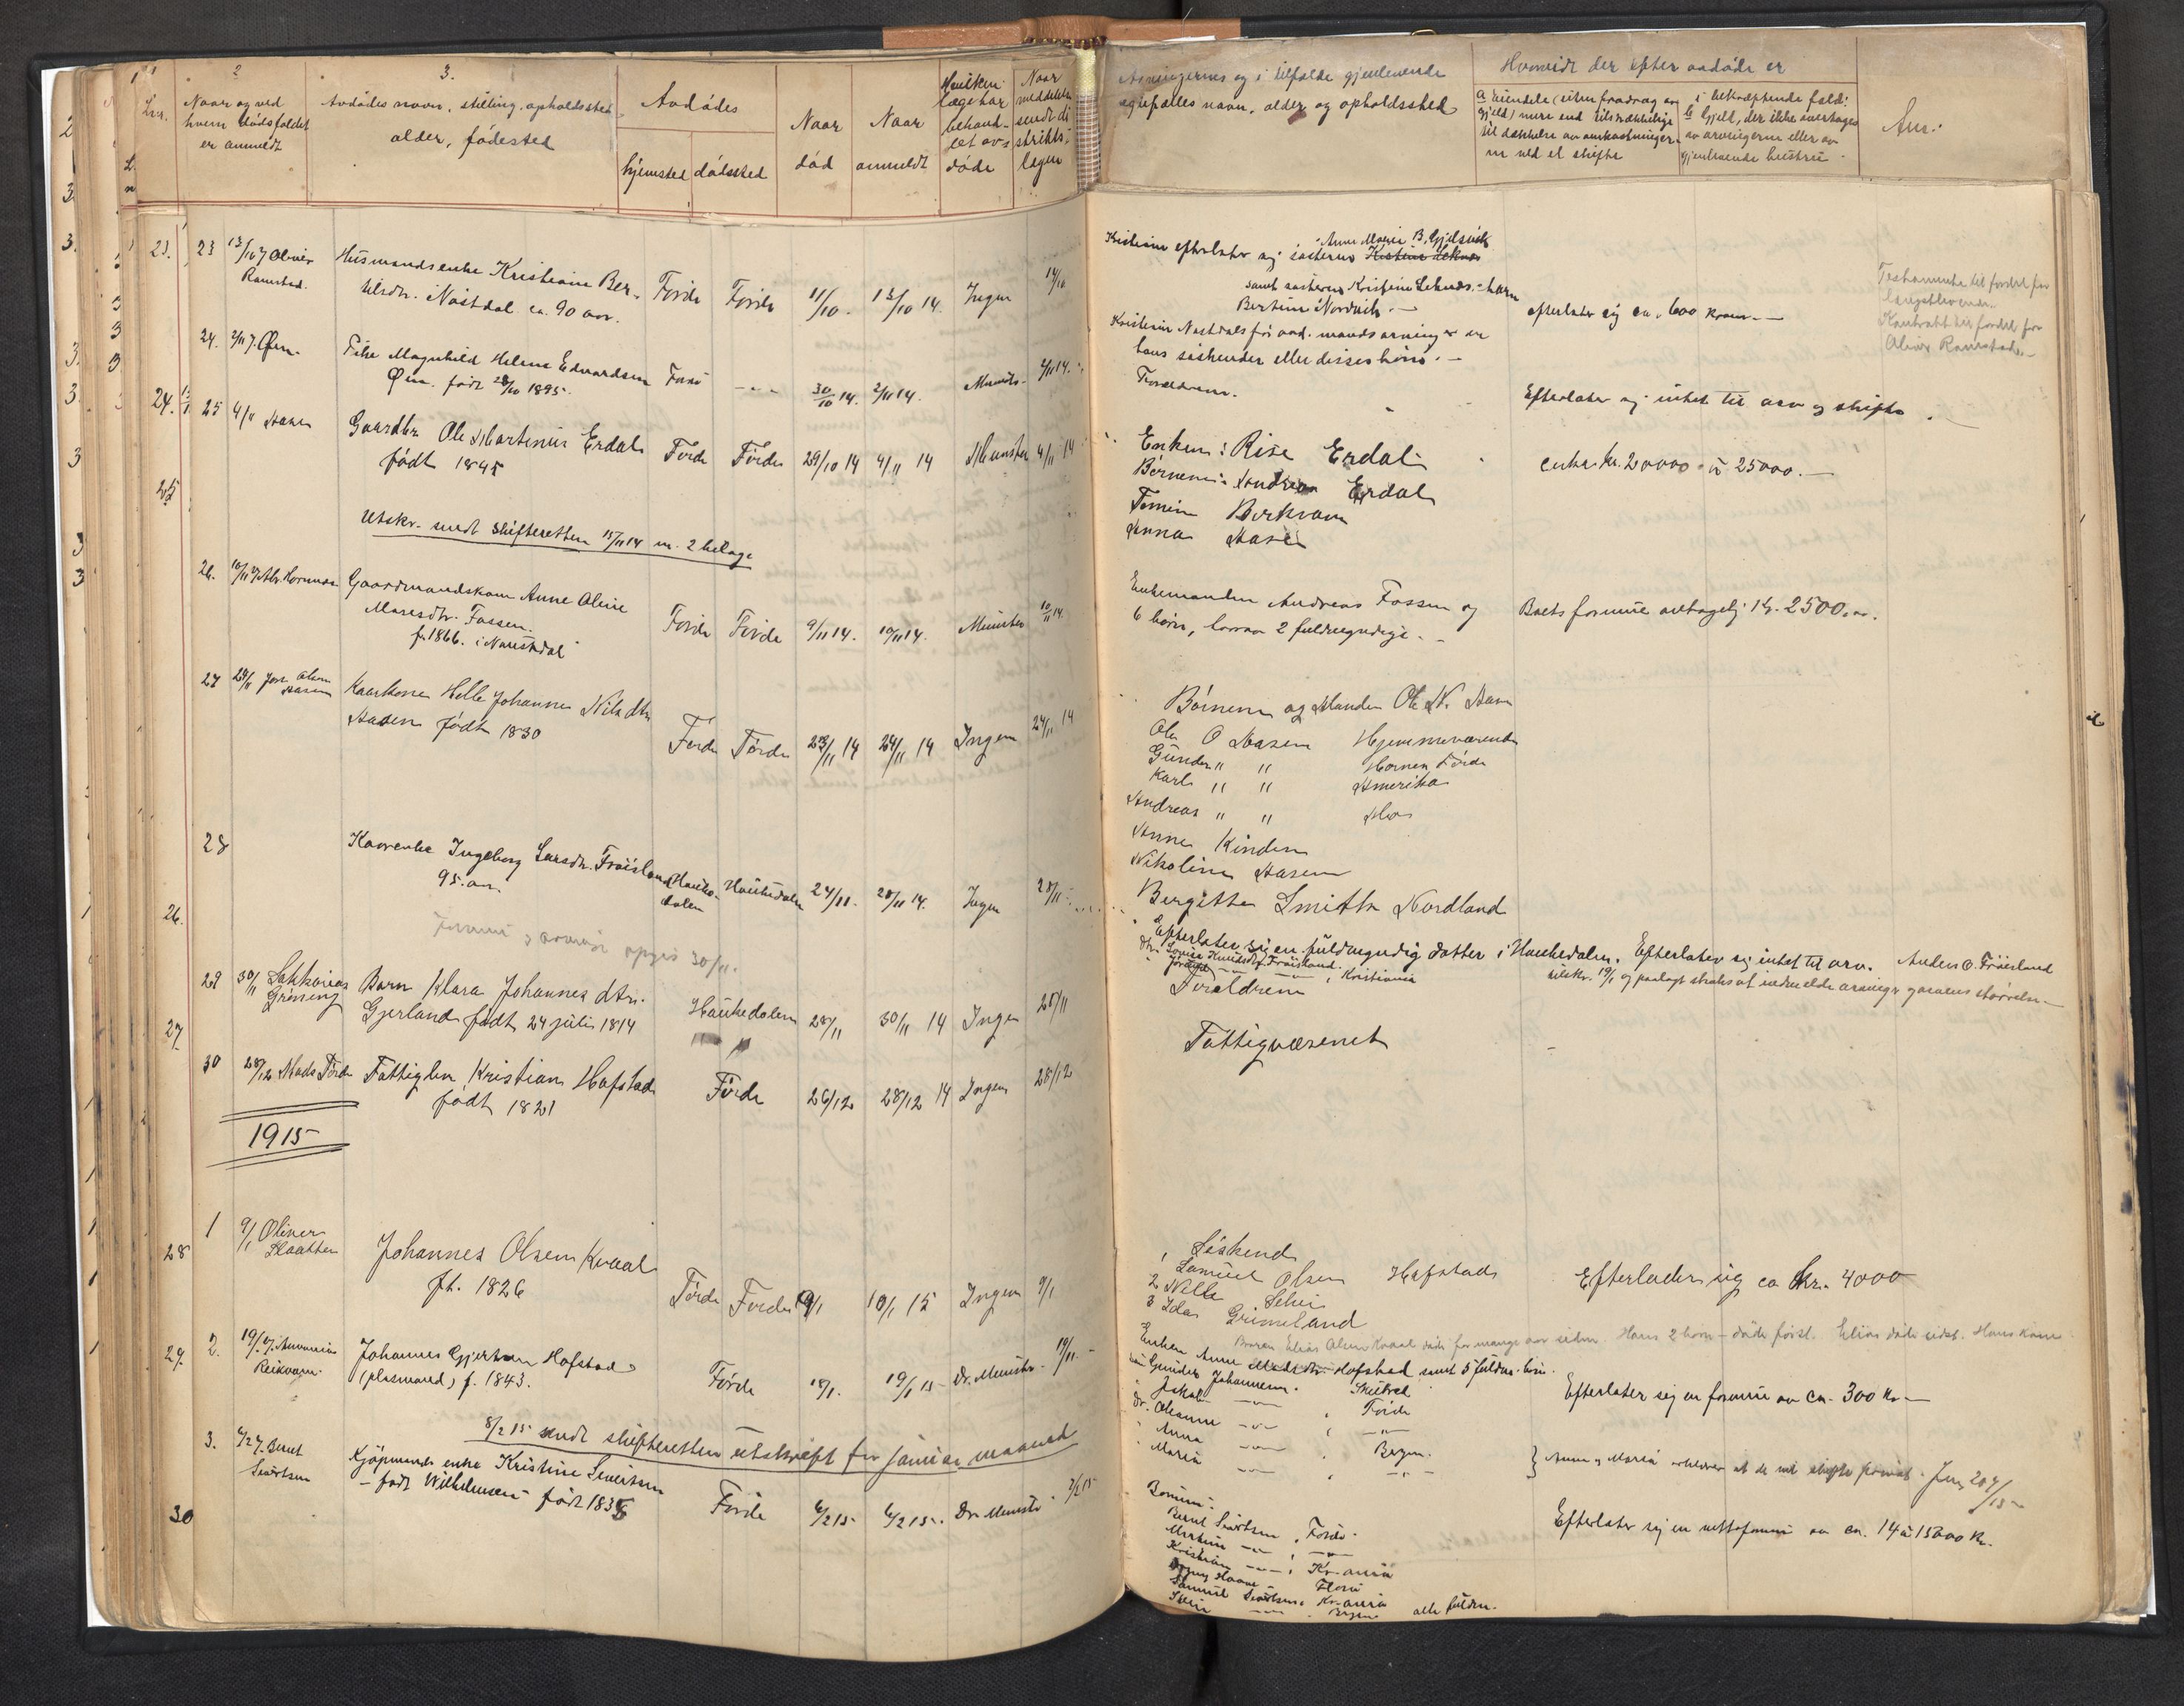 2
3.
Avdødes
Naar og ved
hvem dødsfaldet
er anmeldt
Avdødes navn, stilling, opholdssted
alder, fødested
hjemsted
dødssted
Naar
død
Naar
anmeldt
Hvilken
læge har
behand-
let avd
døde
Naar
meddelelse
sendt di
strikts-
lægen
Arvingernes og i tilfælde gjenlevende
ægtefælles navn, alder og opholdssted
Hvorvidt der efter avdøde er
a eiendele (uten fradrag av
gjeld) mere end tilstrækkelige
til dækkelse av omkostninger-
ne ved et skifte
i bekræftende fald:
b Gjeld, der ikke overtages
av arvingerne eller av
gjenlevende hustru
Anm.
23. 23 13/10 v/ Oliver
Ramstad.
Husmandsenke Kristiane Ber-
telsdtr. Nøstdal ca. 90 aar.
Førde Førde 11/10. 13/10 14. Ingen 14/10
Kristiane efterlater sig søsterne Anne Marie B. Gjelsvik
samt søsteren Kristine Leknes.- børn
Bertine Nordvik. -
Kristiane Nøstdals før avd. mands arvinger er
hans søskender eller disses børn. -
efterlater sig ca. 600 kroner. -
Testamente til fordel for
længstlevende.
Kontrakt til fordel for
Oliver Ramstad. -
24. 2/11 v. Øen.
Pike Magnhild Helene Edvardsen
Øen. født 28/10 1895.
30/10 14. 2/11 14. 2/11 14.
Forældrene.
Efterlater sig intet til arv og skifte.
24. 25 4/11 Hasen
Gaardbr Ole Martinus Erdal
født 1845
Førde Førde 29/10 14 4/11 14 Munster 4/11 14
Enken: Rise Erdal
Børnene: Andreas Erdal
Birkvam
Anna Hasen
cirka kr. 20000 a 25000. -
25
Utskr. sendt skifteretten 15/11 14 m. 2 bilage
26. 10/11 v/
Gaardmandskone Anne Oline
Fossen.
f. 1866. i Naustdal
Førde Førde 9/11 14. 10/11 14. Munster 10/11 14.
Enkemanden Andreas Fossen og
6 børn, hvorav 2 fuldmyndige. -
Boets formue antagelig kr. 2500.
27 24/11 Olsen
Hasen
Kaarkone Helle Johanne Nilsdtr
Hasen født 1830
Førde Førde 23/11 14 24/11 14 Ingen 24/11 14
Børnene og Manden Ole N. Hasen
Ole O Hasen Hjemmeværende
Gunder " " Hornes Førde
Karl " " Amerika
Andreas " "
Anne Kinden
Nikoline Hasen
Birgitte Smith Nordland
28
Kaarenke Ingeborg Larsdtr. Frøisland
95 aar.
Hauke-
dalen
Haukedalen 24/11. 28/11 14. Ingen 28/11
26.
Formue og arvinger opgis 30/11.
Efterlater sig en fuldmyndig datter i Haukedalen. Efterlater sig intet til arv. Anders O. Frøisland
Kristiania
29 30/11 Sakkarias
Grøning
Barn Klara Johannesdtr.
Gjerland født 24 juli 1814
Haukedalen 28/11 30/11 14 Ingen 28/11
Foreldrene
27.
30 28/12 Mads Førde
Fattiglem Kristian Hafstad
født 1821
Førde 26/12 28/12 14 Ingen 28/12
Fattigvæsenet
1915
28 1 9/1 Oliver
Slaatten
Johannes Olsen Kvaal
ft. 1826
Førde Førde 9/1 10/1 15 Ingen 9/1
Søskend
1 Samuel Olsen Hafstad
2 Nille
3 Ida Grimeland
Efterlader sig ca Kr. 4000
Broren Elias Olsen Kvaal døde for mange aar siden. Hans 2 børn - døde først. Elias døde sidst. Hans kone
29. 2. 19/1 v.
Reikvam
Johannes Gjertsen Hafstad
(plasmand) f. 1843.
Førde 18/1. 19/1 15 Dr. Munster.
Enken Anne Hafstad samt 5 fuldm. børn.
Gunder Johannesen.
Jakob Førde
dtr. Oleanne
" Anna Bergen.
" Maria
Efterlater sig en formue av ca. 300 kr. -
Anna og Maria erklærer at de vil skifte privat.
8/2 15 sendt skifteretten utskrift for januar maaned
30 3. 6/2 v. Bernt
Sivertsen
Kjøpmands enke Kristine Sivertsen
- født Wilhelmsen født 1835
Førde 6/2 15 6/2 15. Dr. Munster 7/2 15
Børnene:
Bernt Sivertsen, Førde.
Kristian Kr.ania
Florø
Samuel Sivertsen, Kr.ania
Bergen alle fuldm.
Efterlater sig en nettoformue av ca. 14 a 15000 kr.